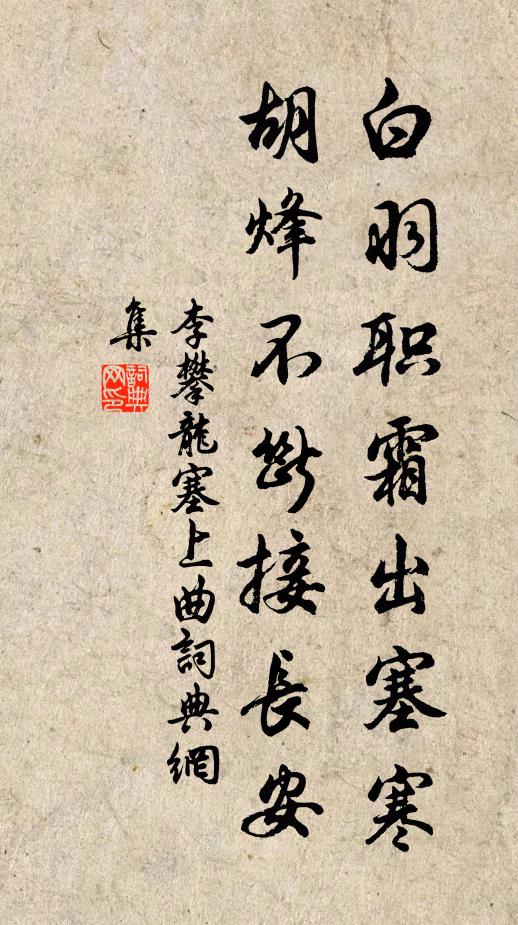 白羽职霜出塞寒
胡烽不断接長安
李攀龍塞上曲詞典網
集
詞典
网印